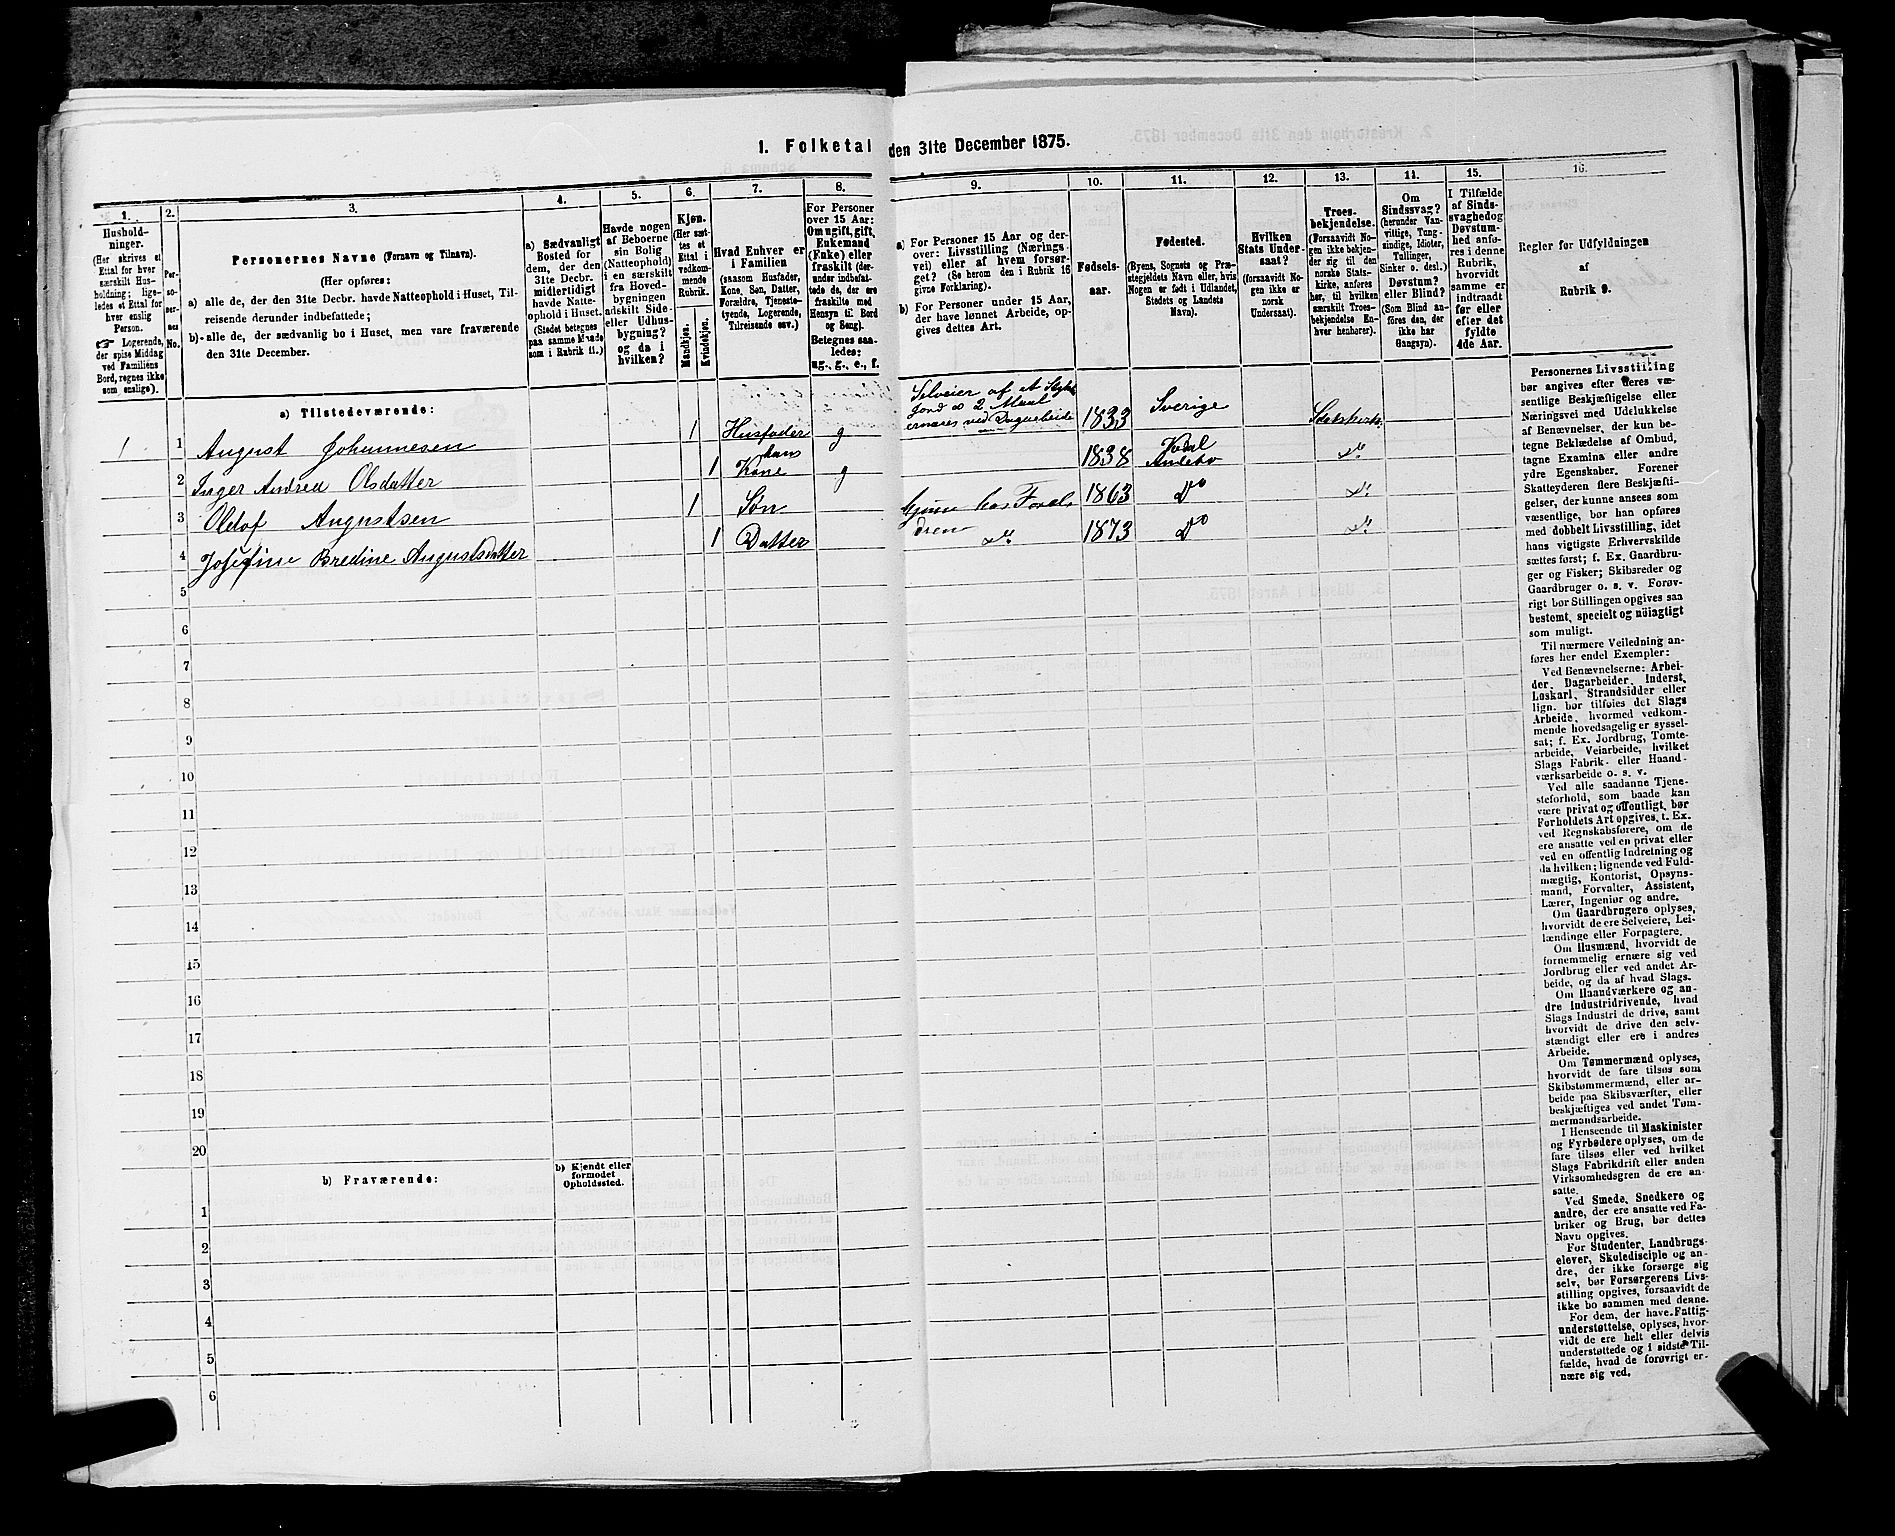 1. Folketal den 31te December 1875.
1.
Husholdninger.
(Her skrives et
Ettal for hver
særskilt Husholdning;
ligeledes et Ettal for
hver enslig
Person.
☞ Logerende,
der spise Middag
ved Familiens
Bord, regnes ikke
som enslige).
2.
Personernes
No.
3.
Personernes Navne (Fornavn og Tilnavn).
(Her opføres:
a) alle de, der den 31te Decbr. havde Natteophold i Huset, Tilreisende derunder indbefattede;
b) alle de, der sædvanlig bo i Huset, men vare fraværende
den 31te December.
4.
a) Sædvanligt
Bosted for
dem, der den
31te Decbr.
midlertidigt
havde Natteophold i Huset.
(Stedet betegnes
paa samme Maade
som i Rubrik 11.)
5.
Havde nogen
af Beboerne
sin Bolig
(Natteophold)
i en særskilt
fra Hovedbygningen
adskilt Side-
eller Udhusbygning?
og da i
hvilken?
6.
Kjøn.
(Her sættes et
Ettal i
vedkommende
Rubrik.
Mandkjøn.
Kvindekjøn.
7.
Hvad Enhver er
i Familien
(saasom Husfader,
Kone, Søn, Datter,
Forældre, Tjenestetyende, Logerende,
Tilreisende osv.)
8.
For Personer
over 15 Aar:
Om ugift, gift,
Enkemand
(Enke) eller
fraskilt (derunder indbefattede de, der ere
fraskilte med
Hensyn til Bord
og Seng).
Betegnes saaledes:
ug., g., e., f.
9.
a) For Personer 15 Aar og derover: Livsstilling (Næringsvei) eller af hvem forsørget? (Se herom den i Rubrik 16
givne Forklaring).
b) For Personer under 15 Aar,
der have lønnet Arbeide, opgives dettes Art.
10.
Fødselsaar.
11.
Fødested.
(Byens, Sognets og Præstegjeldets Navn eller, hvis
Nogen er født i Udlandet,
Stedets og Landets
Navn).
12.
Hvilken
Stats Undersaat?
(forsaavidt Nogen ikke er
norsk
Undersaat).
13.
Troesbekjendelse.
(Forsaavidt Nogen ikke bekjender sig til den
norske Statskirke, anføres
her, til hvilken
særskilt Troesbekjendelse Enhver henhører).
14.
Om
Sindssvag?
(herunder Vanvittige, Tungsindige, Idioter,
Tullinger,
Sinker o. desl.)
Døvstum?
eller Blind?
(Som Blind anføres den, der
ikke har
Gangsyn).
15.
I Tilfælde
af Sindssvaghed og
Døvstumhed anføres i denne
Rubrik,
hvorvidt
samme er
indtraadt
før eller
efter det
fyldte
4de Aar.
16.
Regler for Udfyldningen
af
Rubrik 9.
a) Tilstedeværende:
1 1 August Johannesen 1 Husfader g Selveier af et Stykke Jord ∞ 2 Maal ernæres ved Dagarbeide 1833 Sverige Statskirke
2 Inger Andrea Olsdatter 1 hans Kone g 1838 Kodal Andebo Do
3 Oletof Augustsen 1 Søn hjemme hos Forældrene 1863 Do Do
4 Josefine Bredine Augustsdatter 1 Datter Do 1873 Do Do
5
6
7
8
9
10
11
12
13
14
15
16
17
18
19
20
b) Fraværende:
b) Kjendt eller
formodet
Opholdssted.
1
2
3
4
5
6
Personernes Livsstilling
bør angives efter deres væsentlige Beskjæftigelse eller
Næringsvei med Udelukkelse
af Benævnelser, der kun betegne Beklædelse af Ombud,
tagne Examina eller andre
ydre Egenskaber. Forener
Skatteyderen flere Beskjæftigelser, der kunne ansees som
væsentlige, bør han opføres
med dobbelt Livsstilling, idet
hans vigtigste Erhvervskilde
sættes først; f. Ex. Gaardbruger og Fisker; Skibsreder og
Gaardbruger o. s. v. Forøvrigt bør Stillingen opgives saa
bestemt, specielt og nöiagtigt
som muligt.
Til nærmere Veiledning anføres her endel Exempler:
Ved Benævnelserne: Arbeider, Dagarbeider, Inderst,
Løskarl, Strandsidder eller
lign. bør tilføies det Slags
Arbeide, hvormed vedkommende hovedsagelig er sysselsat; f. Ex. Jordbrug, Tomtearbeide, Veiarbeide, hvilket
Slags Fabrik- eller Haandværksarbeide o. s. v.
Ved alle saadanne Tjenesteforhold, som baade kan
være privat og offentligt, bør
Forholdets Art opgives, t. Ex.
ved Regnskabsførere, om de
ere ansatte ved en privat eller
ved en offentlig Indretning og
da hvilken; lignende ved Fuldmægtig, Kontorist, Opsynsmand, Forvalter, Assistent,
Lærer, Ingeniør og andre.
Om Gaardbrugere oplyses,
hvorvidt de ere Selveiere, Leilændinge eller Forpagtere.
Om Husmænd, hvorvidt de
fornemmelig ernære sig ved
Jordbrug eller ved andet Arbeide, og da af hvad Slags.
Om Haandværkere og andre Industridrivende, hvad
Slags Industri de drive, samt
hvorvidt de drive den selvstændigt eller ere i andres
Arbeide.
Om Tømmermænd oplyses,
hvorvidt de fare tilsøs som
Skibstømmermænd, eller arbeide paa Skibsværfter, eller
beskjæftiges ved andet Tømmermandsarbeide.
I Henseende til Maskinister
og Fyrbødere oplyses, om de
fare tilsøs eller ved hvilket
Slags Fabrikdrift eller anden
Virksomhedsgren de ere ansatte.
Ved Smede, Snedkere og
andre, der ere ansatte ved Fabriker og Brug, bør dettes
Navn opgives.
For Studenter, Landbrugselever, Skoledisciple og andre, der ikke forsørge sig
selv, bør Forsørgerens Livsstilling opgives, forsaavidt de
ikke bo sammen med denne.
For dem, der have Fattigunderstøttelse, oplyses, hvorvidt de ere helt eller delvis
understøttede og i sidste Tilfælde, hvad de forøvrigt ernære sig ved.